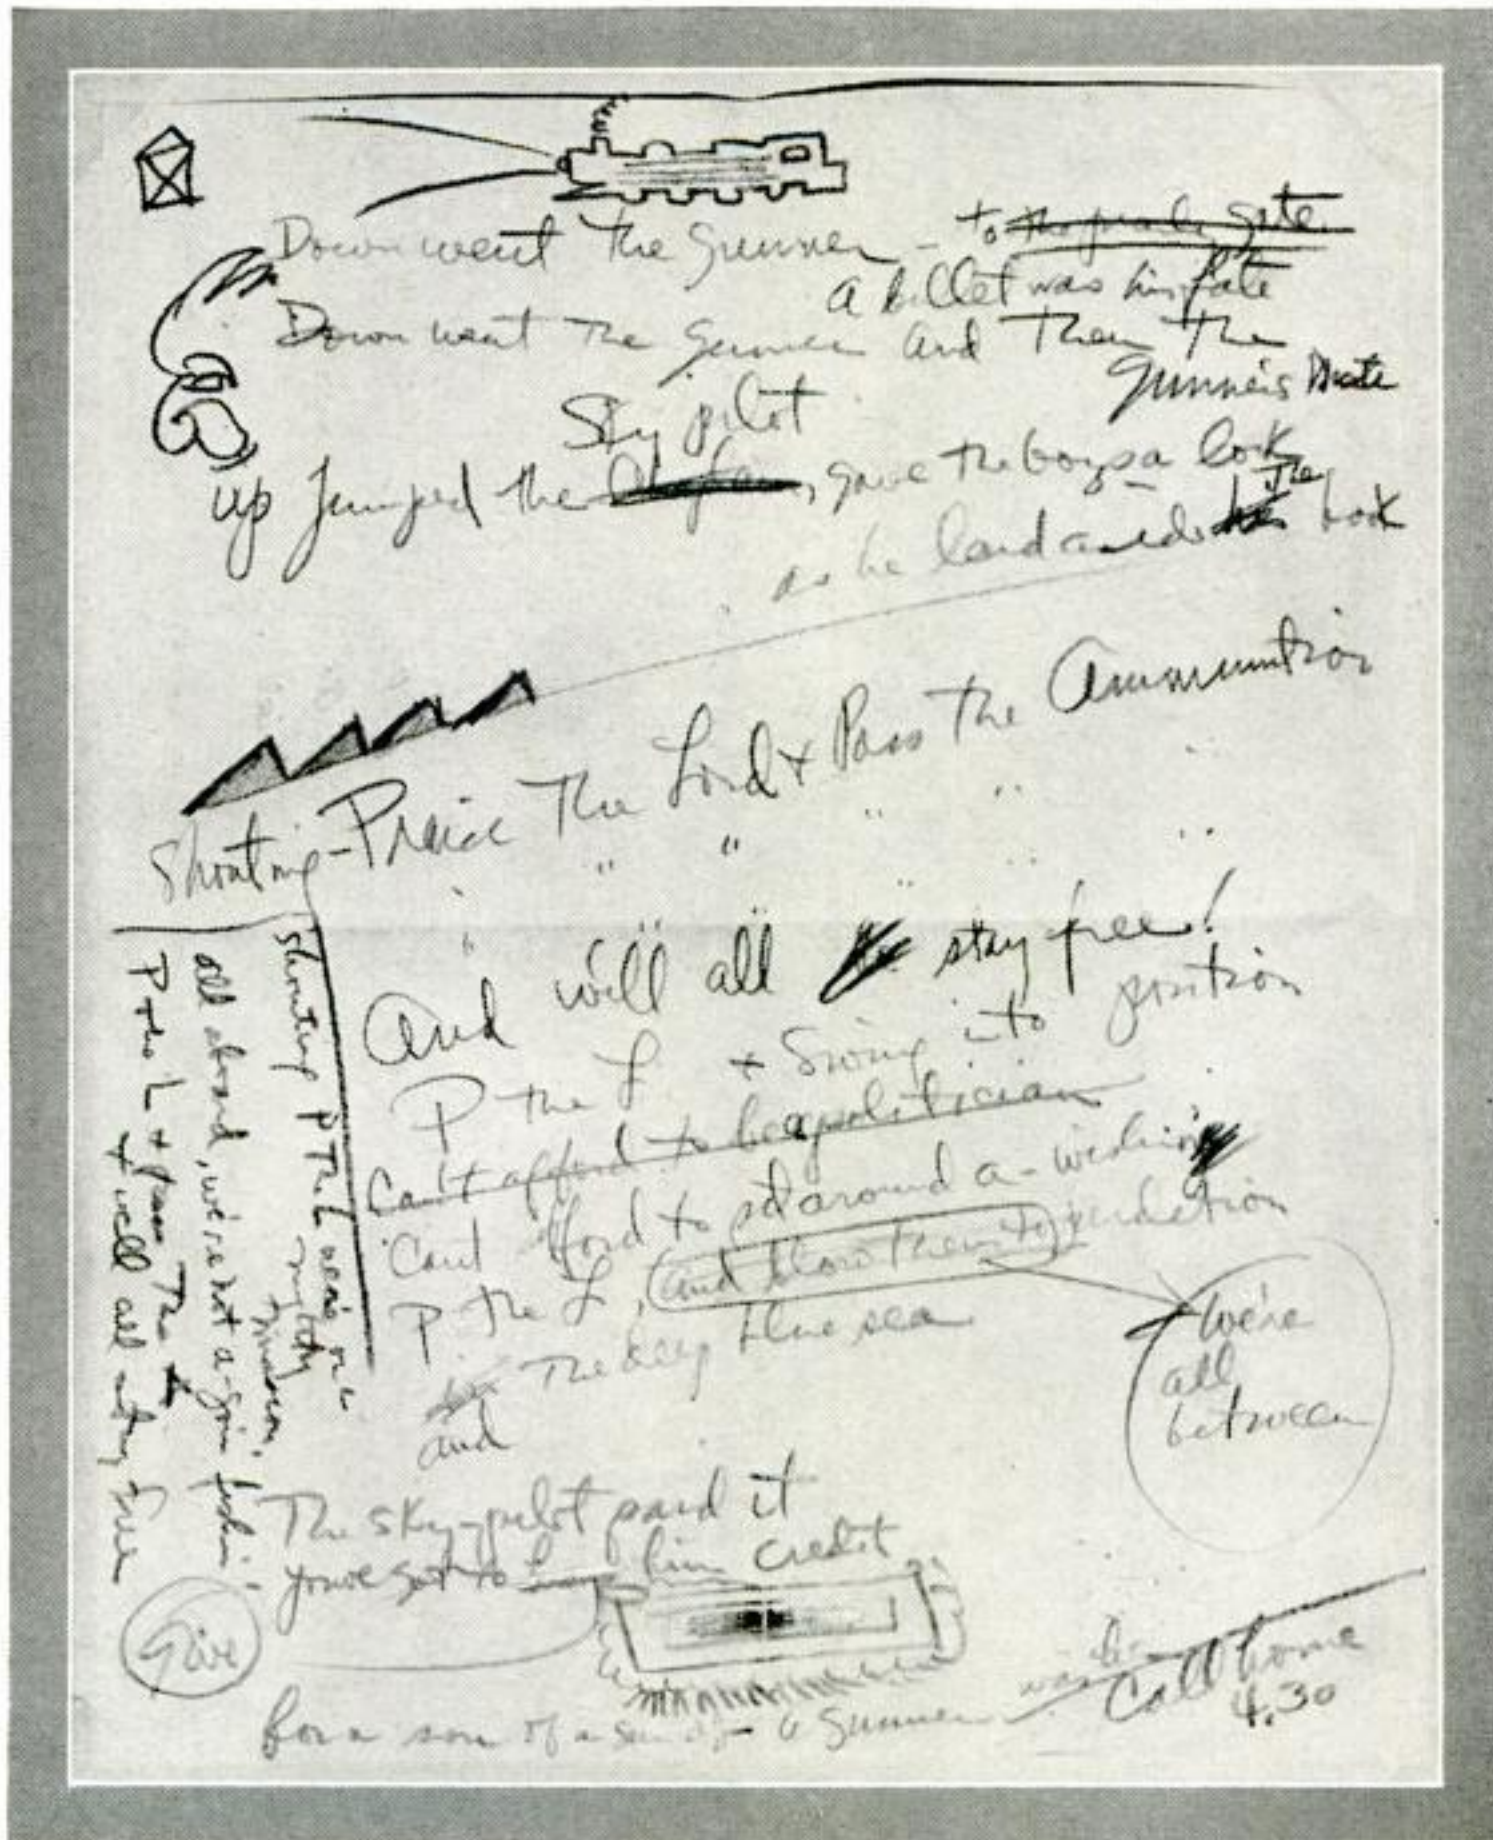 Down went the gunner - to the pearly gate
A bullet was his fate
Down went the gunner and Then The
gunner's Mate
Sky pilot
up jumped the , gave the boys a look
The
as he land his book
Shouting - Praise The Lord + Pass The Ammunition
" " " " " "
And we'll all stay free!
P the L + Swing into position
Can't afford to be a politician
Can't afford to sit around a-wishin
P the L, and blow them to perdition
The deep blue sea
and
we're
all
between
The sky-pilot said it
you've got to him credit
Give
for a son of a gun of a gunner was he
Call home
4.30
Shouting P The L we're on a
mighty
mission,
all aboard, we're not a-goin fishin,
P the L + pass The
+ we'll all stay free